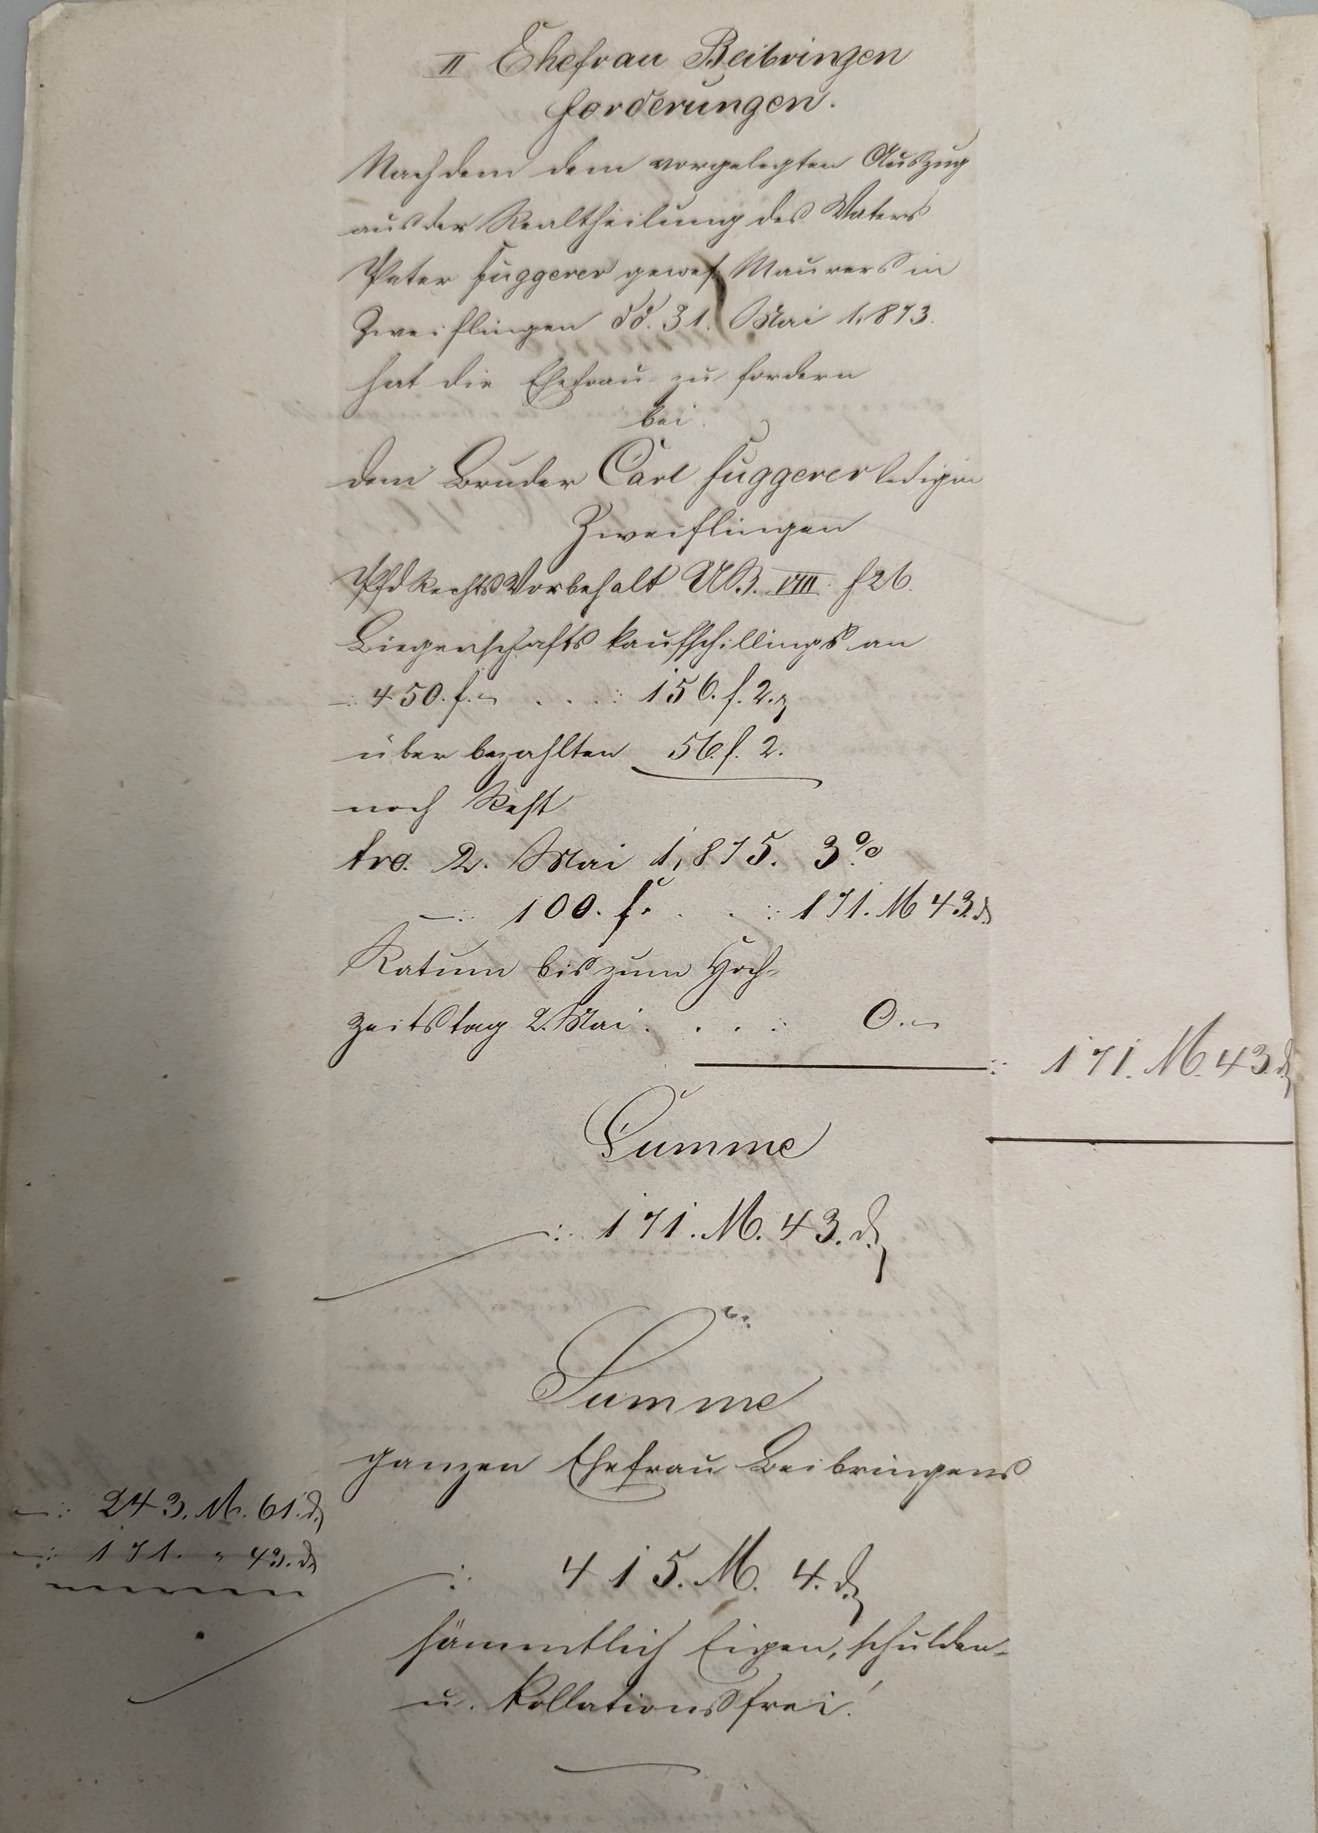 II Ehefrau Beibringen
Forderungen.
Nachdem dem vorgelegten Auszug
aus der Realtheilung des Vaters
Peter Fuggerer gewes. Maurers in
Zweiflingen dd. 31. Mai 1,873.
hat die Ehefrau zu fordern
bei
dem Bruder Carl Fuggerer ledig in
Zweiflingen
Pfd Rechts Vorbehalt UB. VIII. f 26.
Liegenschafts kaufschillings an
450. f. – . . . : 156. f. 2.
über bezahlten 56. f. 2.
noch Rest
fro. 2. Mai 1,875. 3%
–: 100. f. . . : 171. M 43. d.
Ratum bis zum Hoch-
zeitstag 2. Mai . . . : 0. –
: 171. M. 43. d.
Summe
–: 171. M. 43. d.
Summe
ganzen Ehefrau Beibringens
–: 243. M. 61. d.
–: 171. " 43. d.
: 415. M. 4. d.
sämmtlich Eigen, schulden-
u. Kollationsfrei.